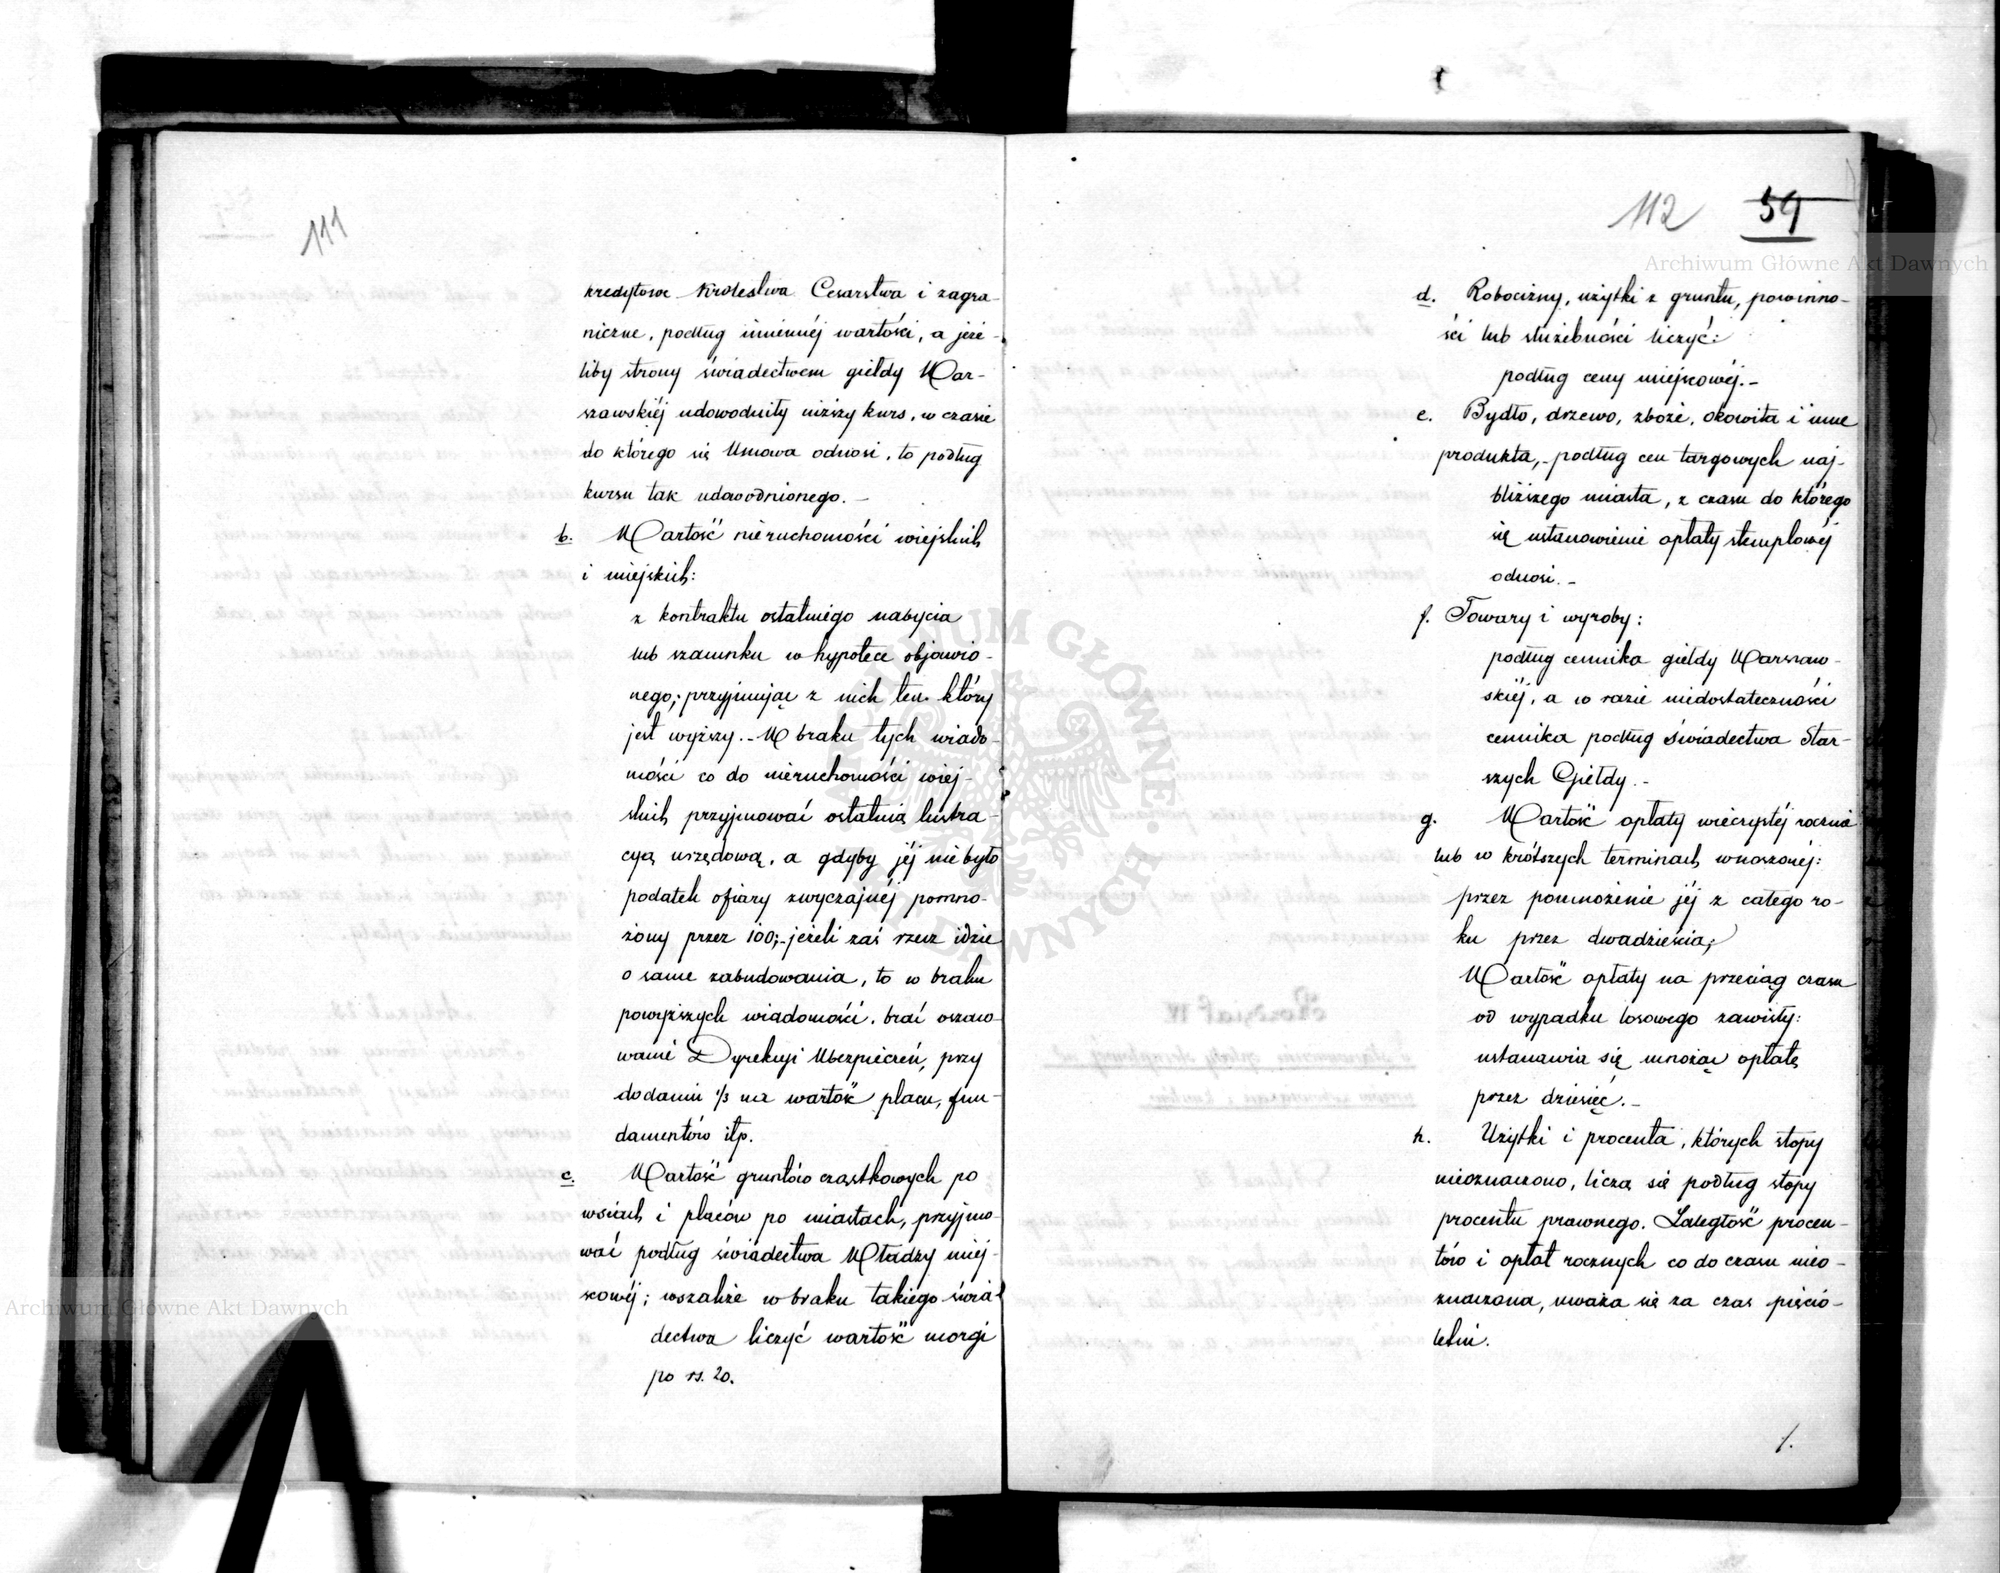 111
kredytowe Królestwa Cesarstwa i zagra-
niczne, podług imiennéj wartości, a jeże-
liby strony świadectwem giełdy War-
szawskiéj udowodniły niższy kurs, w czasie
do którego się Umowa odnosi, to podług
kursu tak udowodnionego. -
b. Wartość nieruchomości wiejskich
i miejskich:
z kontraktu ostatniego nabycia
lub szacunku w hypotece objawio-
nego; przyjmując z nich ten który
jest wyższy. - W braku tych wiado-
mości co do nieruchomości wiej-
skich przyjmować ostatnią lustra-
cyą urzędową, a gdyby jéj nie było
podatek ofiary zwyczajnéj pomno-
żony przez 100; - jeżeli zaś rzecz idzie
o same zabudowania, to w braku
powyższych wiadomości, brać oszaco-
wanie Dyrekcyi Ubezpieczeń, przy
dodaniu 1/3 na wartość placu, fun-
damentów itp.
c. Wartość gruntów cząstkowych po
wsiach i placów po miastach, przyjmo-
wać podług świadectwa Władzy miej-
scowéj; wszakże w braku takiego świa-
dectwa liczyć wartość morgi
po rs. 20.
112 59
d. Robocizny, użytki z gruntu, powinno-
ści lub służebności liczyć:
podług ceny miejscowéj. -
e. Bydło, drzewo, zboże, okowita i inne
produkta, - podług cen targowych naj-
bliższego miasta, z czasu do którego
się ustanowienie opłaty stemplowéj
odnosi. -
f. Towary i wyroby:
podług cennika giełdy Warszaw-
skiéj, a w razie niedostateczności
cennika podług świadectwa Star-
szych Giełdy. -
g. Wartość opłaty wieczystéj rocznie
lub w krótszych terminach wnoszonéj:
przez pomnożenie jéj z całego ro-
ku przez dwadzieścia;
Wartość opłaty na przeciąg czasu
od wypadku losowego zawisły:
ustanawia się mnożąc opłatę
przez dziesięć. -
h. Użytki i procenta, których stopy
nieoznaczono, liczą się podług stopy
procentu prawnego. Zaległość procen-
tów i opłat rocznych co do czasu nieo-
znaczona, uważa się za czas pięcio-
letni.
1.
Archiwum Główne Akt Dawnych
Archiwum Główne Akt Dawnych
ARCHIWUM GŁÓWNE AKT DAWNYCH